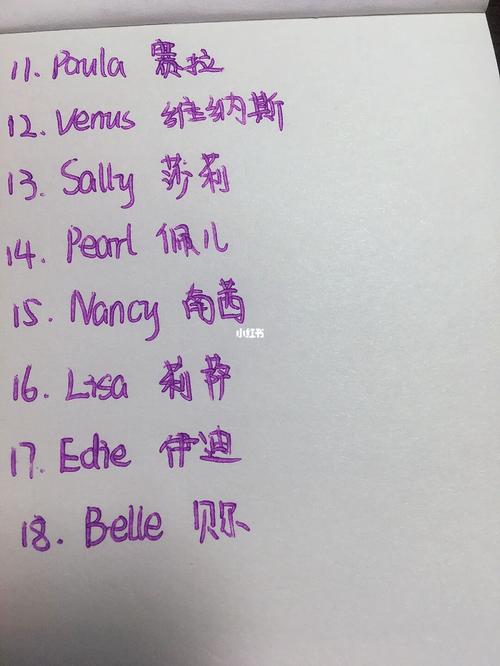 11. Paula 赛拉
12. Venus 维纳斯
13. Sally 莎莉
14. Pearl 佩儿
15. Nancy 南茜
小红书
16. Lisa 莉萍
17. Edie 伊迪
18. Belle 贝尔